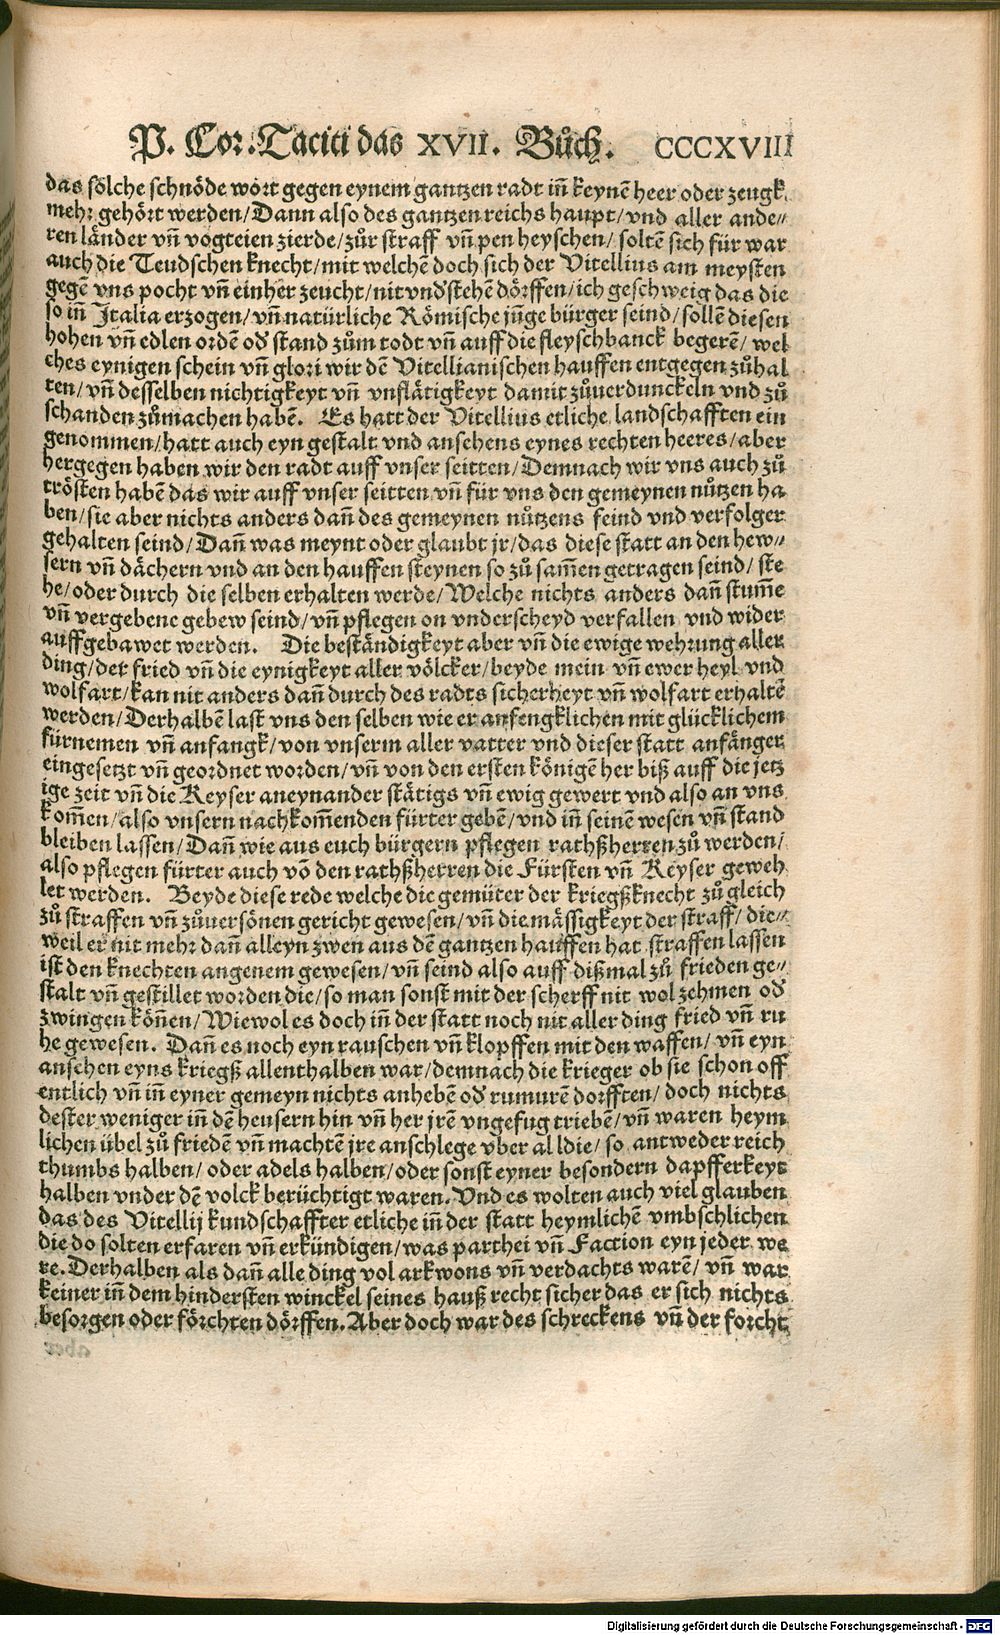 P. Cor. Taciti das XVII. Bůch. CCCXVIII
das sölche schnöde wort gegen eynem gantzen radt iñ keynē heer oder zeugk
mehr gehört werden/Dann also des gantzen reichs haupt/vnd aller ande⸗
ren länder vñ vogteien zierde/zůr straff vñ pen heyschen/ soltē sich für war
auch die Teudschen knecht/mit welchē doch sich der Vitellius am meysten
gegē vns pocht vñ einher zeucht/nit vnd̕stehē dörffen/ich geschweig das die
so iñ Italia erzogen/vñ natürliche Römische jūge bürger seind/söllē diesen
hohen vñ edlen ordē od̕ stand zům todt vñ auff die fleyschbanck begerē/ wel
ches eynigen schein vñ glori wir dē Vitellianischen hauffen entgegen zůhal
ten/vñ desselben nichtigkeyt vñ vnflätigkeyt damit zůuerdunckeln vnd zů
schanden zůmachen habē. Es hatt der Vitellius etliche landschafften ein
genommen/hatt auch eyn gestalt vnd ansehens eynes rechten heeres/aber
hergegen haben wir den radt auff vnser seitten/Demnach wir vns auch zů
trösten habē das wir auff vnser seitten vñ für vns den gemeynen nůtzen ha
ben/sie aber nichts anders dañ des gemeynen nůtzens feind vnd verfolger
gehalten seind/Dañ was meynt oder glaubt jr/das diese statt an den hew⸗
sern vñ dächern vnd an den hauffen steynen so zů sam̄en getragen seind/ ste
he/oder durch die selben erhalten werde/Welche nichts anders dañ stum̄e
vñ vergebene gebew seind/vñ pflegen on vnderscheyd verfallen vnd wider
auffgebawet werden. Die beständigkeyt aber vñ die ewige wehrung aller
ding/der fried vñ die eynigkeyt aller völcker/beyde mein vñ ewer heyl vnd
wolfart/kan nit anders dañ durch des radts sicherheyt vñ wolfart erhaltē
werden/Derhalbē last vns den selben wie er anfengklichen mit glücklichem
fürnemen vñ anfangk/von vnserm aller vatter vnd dieser statt anfänger
eingesetzt vñ geordnet worden/vñ von den ersten königē her biß auff die jetz
ige zeit vñ die Keyser aneynander stätigs vñ ewig gewert vnd also an vns
kom̄en/also vnsern nachkom̄enden fürter gebē/vnd iñ seinē wesen vñ stand
bleiben lassen/Dañ wie aus euch bürgern pflegen rathßherren zů werden/
also pflegen fürter auch vō den rathßherren die Fürsten vñ Keyser geweh
let werden. Beyde diese rede welche die gemüter der kriegßknecht zů gleich
zů straffen vñ zůuersönen gericht gewesen/vñ die mässigkeyt der straff/ die⸗
weil er nit mehr dañ alleyn zwen aus dē gantzen hauffen hat straffen lassen
ist den knechten angenem gewesen/vñ seind also auff dißmal zů frieden ge⸗
stalt vñ gestillet worden die/so man sonst mit der scherff nit wol zehmen od̕
zwingen köñen/Wiewol es doch iñ der statt noch nit aller ding fried vñ ru
he gewesen. Dañ es noch eyn rauschen vñ klopffen mit den waffen/ vñ eyn
ansehen eyns kriegß allenthalben war/demnach die krieger ob sie schon off
entlich vñ iñ eyner gemeyn nichts anhebē od̕ rumurē dorfften/ doch nichts
dester weniger iñ dē heusern hin vñ her jrē vngefug triebē/vñ waren heym
lichen übel zů friedē vñ machtē jre anschlege vber all die/ so antweder reich
thumbs halben/ oder adels halben/oder sonst eyner besondern dapfferkeyt
halben vnder dē volck berüchtigt waren. Vnd es wolten auch viel glauben
das des Vitellij kundschaffter etliche iñ der statt heymlichē vmbschlichen
die do solten erfaren vñ erkündigen/was parthei vñ Faction eyn jeder we
re. Derhalben als dañ alle ding vol arkwons vñ verdachts warē/ vñ war
keiner iñ dem hindersten winckel seines hauß recht sicher das er sich nichts
besorgen oder förchten dörffen. Aber doch war des schreckens vñ der forcht
Digitalisierung gefördert durch die Deutsche Forschungsgemeinschaft - DFG